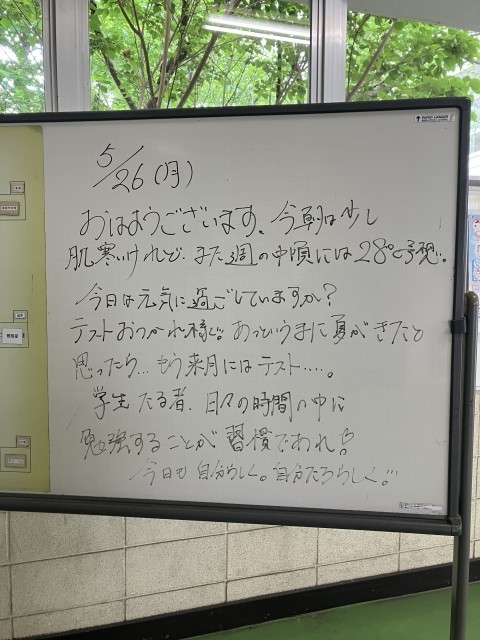 5/26(月)
おはようございます。今朝は少し
肌寒いけれど、また週の中頃には28°C予想。
今日は元気に過ごしていますか?
テストおつかれ様。あっというまに夏がきたと
思ったら…もう来月にはテスト….。
学生たる者、日々の時間の中に
勉強することが習慣であれ!
今日も自分らしく。自分たちらしく!!